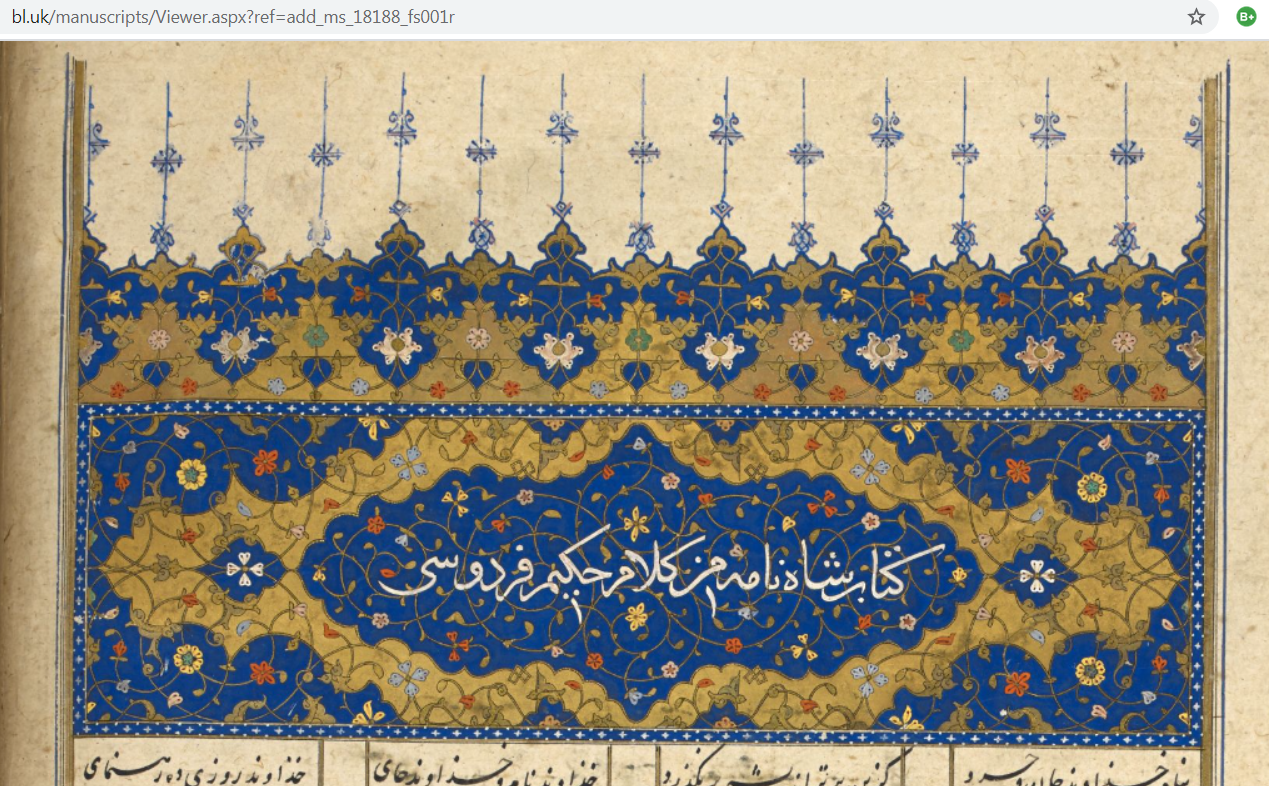 bl.uk/manuscripts/Viewer.aspx?ref=add_ms_18188_fs001r
B+
کتاب شاه نامه من کلام حکیم فردوسی
بنام خداوند جان و خرد کزین برتر اندیشه بر نگذرد خداوند نام و خداوند جای خداوند روزی ده رهنمای